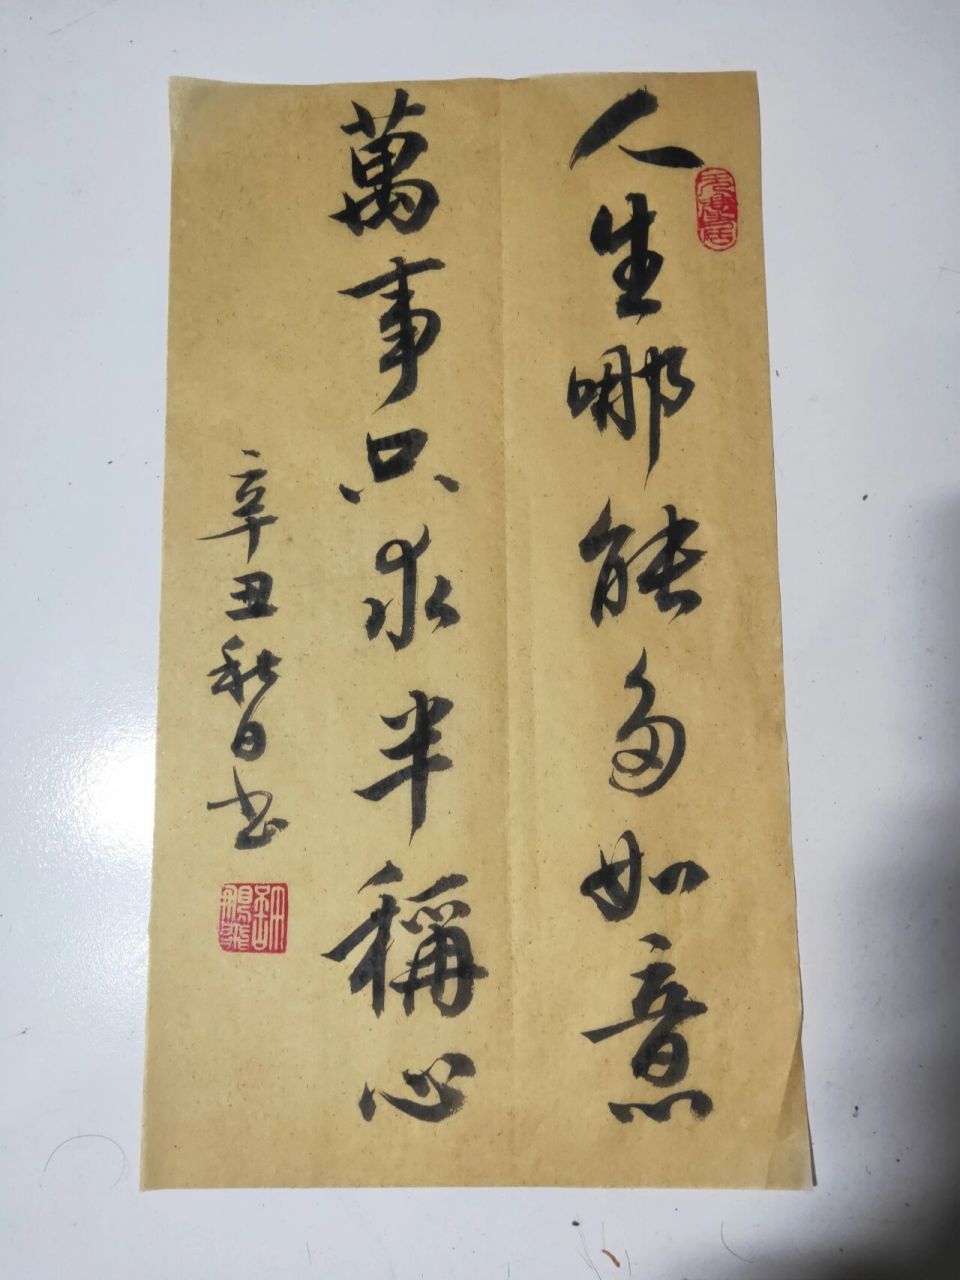 人生哪能多如意
萬事只求半稱心
辛丑秋日书